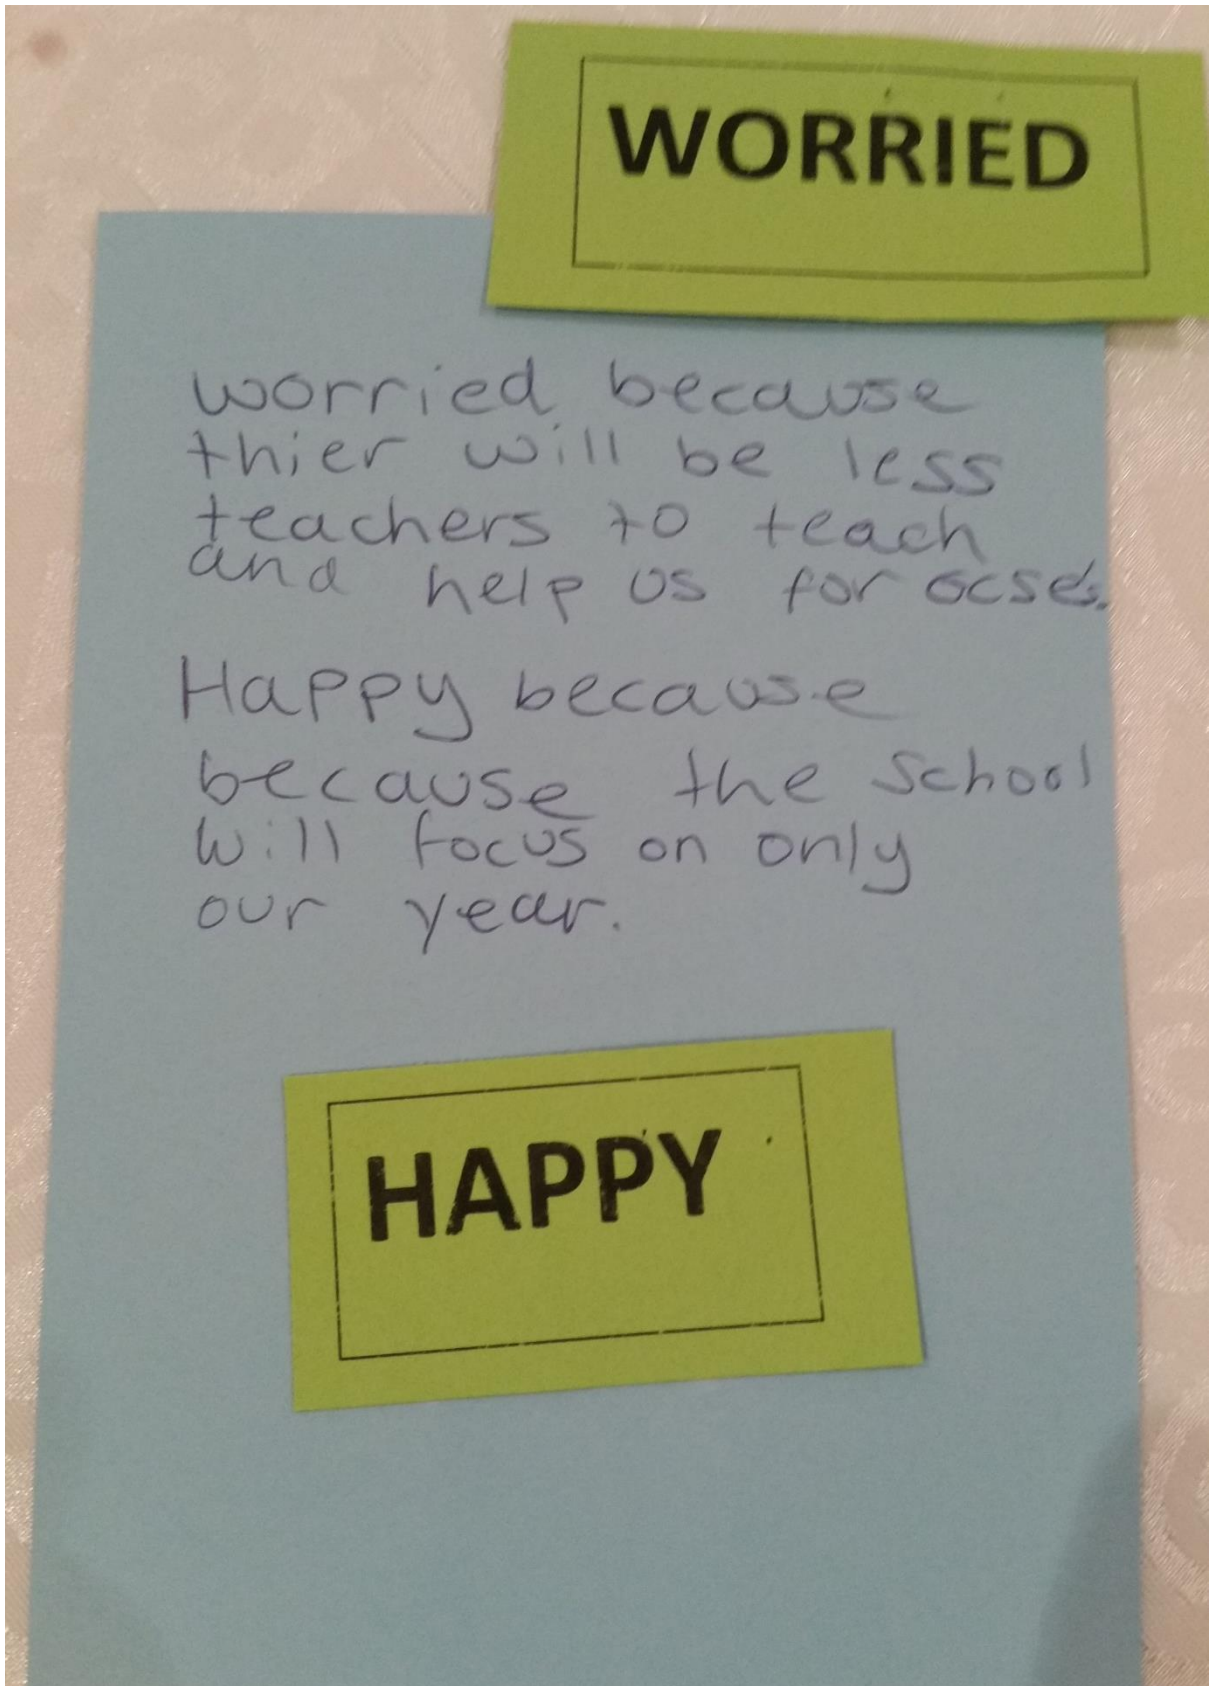 WORRIED
worried because
thier will be less
teachers to teach
and help us for GCSE's.
Happy because
because the school
will focus on only
our year.
HAPPY